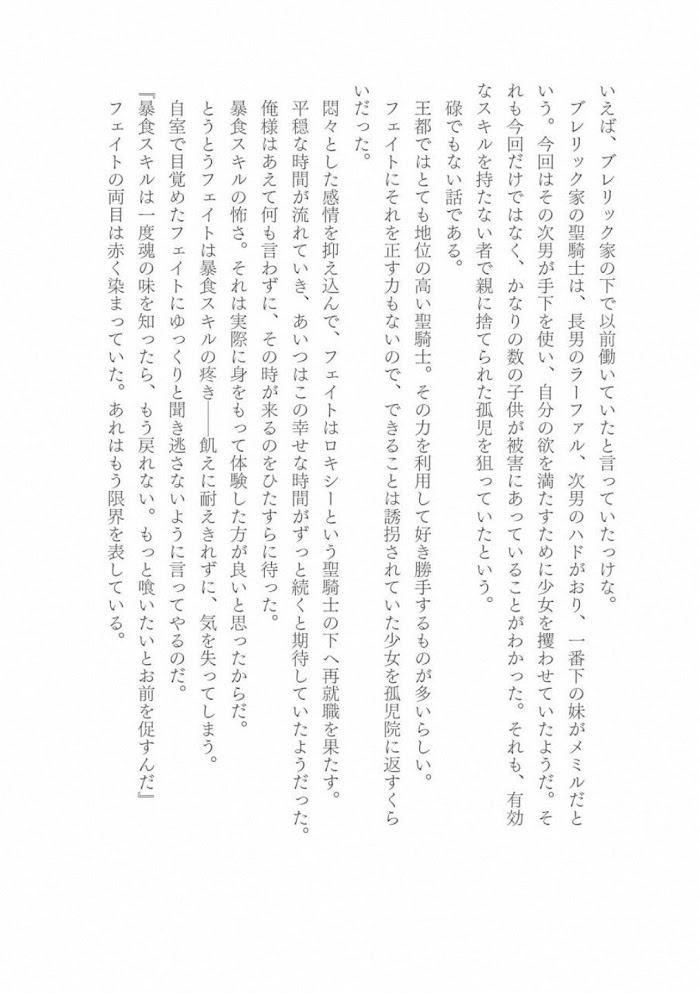 いえば、ブレリック家の下で以前働いていたと言っていたっけな。
ブレリック家の聖騎士は、長男のラーファル、次男のハドがおり、一番下の妹がメミルだと
いう。今回はその次男が手下を使い、自分の欲を満たすために少女を攫わせていたようだ。そ
れも今回だけではなく、かなりの数の子供が被害にあっていることがわかった。それも、有効
なスキルを持たない者で親に捨てられた孤児を狙っていたという。
碌でもない話である。
王都ではとても地位の高い聖騎士。その力を利用して好き勝手するものが多いらしい。
フェイトにそれを正す力もないので、できることは誘拐されていた少女を孤児院に返すくら
いだった。
悶々とした感情を抑え込んで、フェイトはロキシーという聖騎士の下へ再就職を果たす。
平穏な時間が流れていき、あいつはこの幸せな時間がずっと続くと期待していたようだった。
俺様はあえて何も言わずに、その時が来るのをひたすらに待った。
暴食スキルの怖さ。それは実際に身をもって体験した方が良いと思ったからだ。
とうとうフェイトは暴食スキルの疼き――飢えに耐えきれずに、気を失ってしまう。
自室で目覚めたフェイトにゆっくりと聞き逃さないように言ってやるのだ。
『暴食スキルは一度魂の味を知ったら、もう戻れない。もっと喰いたいとお前を促すんだ』
フェイトの両目は赤く染まっていた。あれはもう限界を表している。